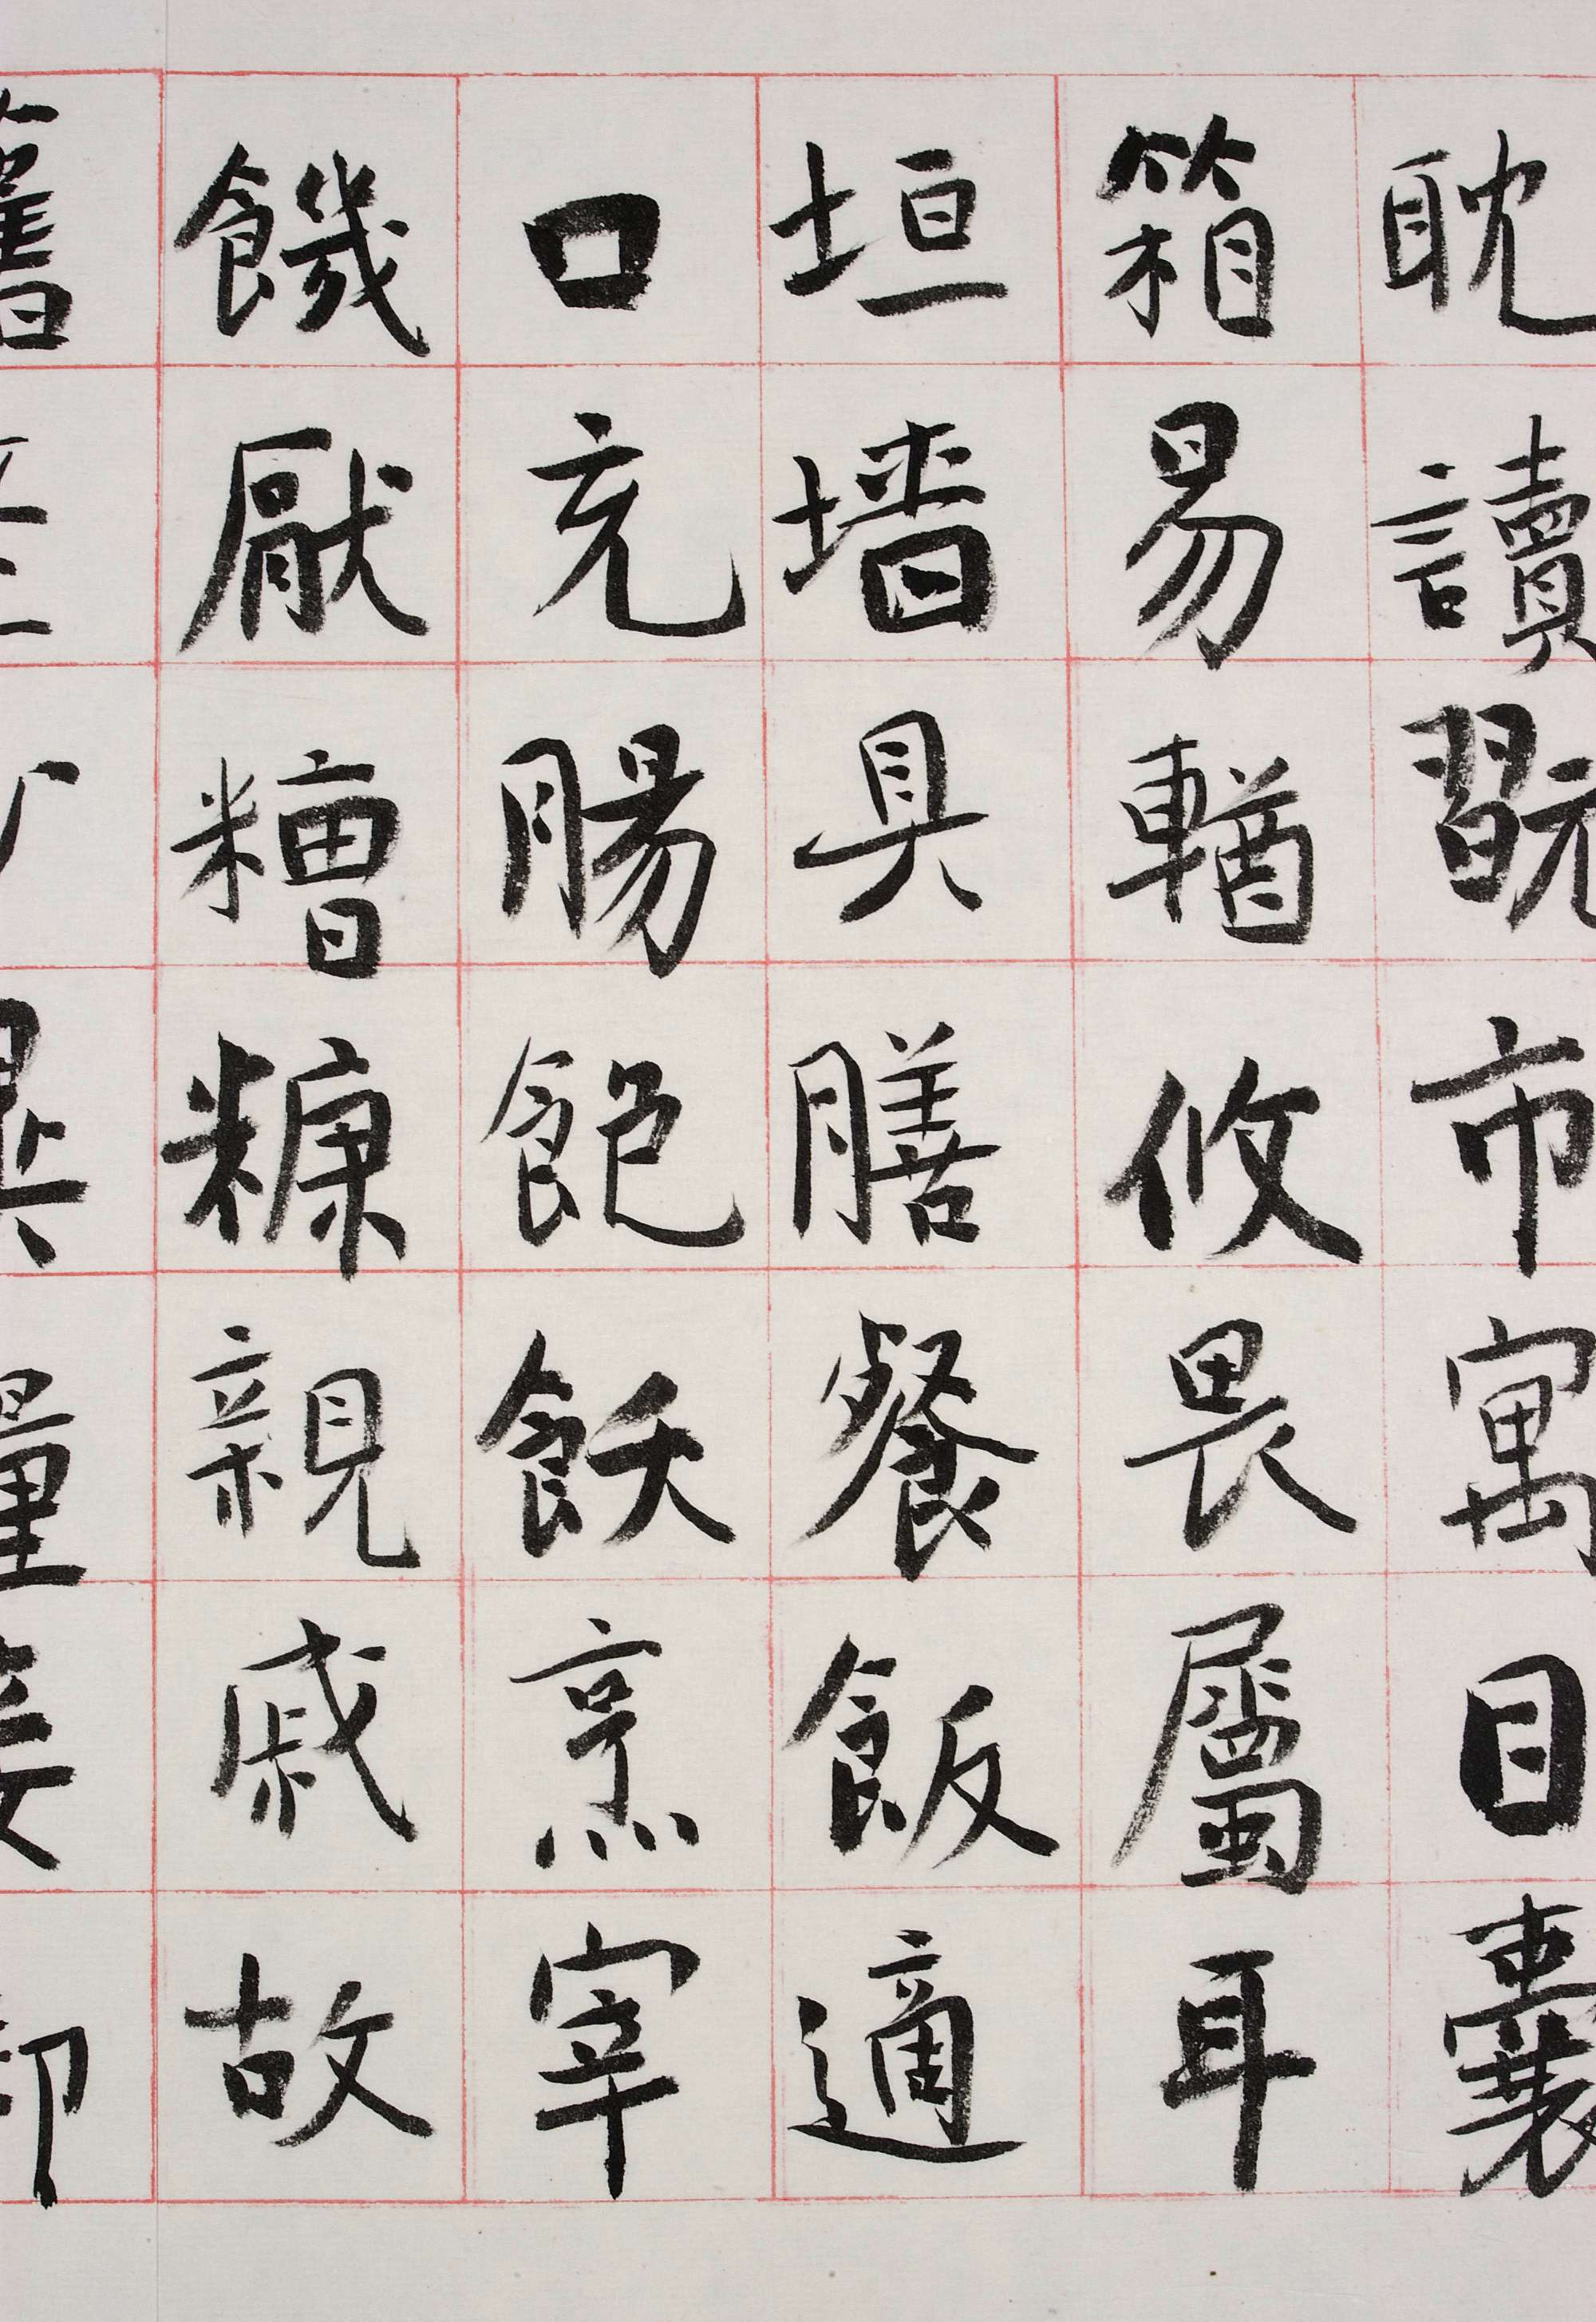 耽讀翫市寓目囊
箱易輶攸畏屬耳
垣墙具膳餐飯適
口充腸飽飫烹宰
饑厭糟糠親戚故
舊異糧妾御